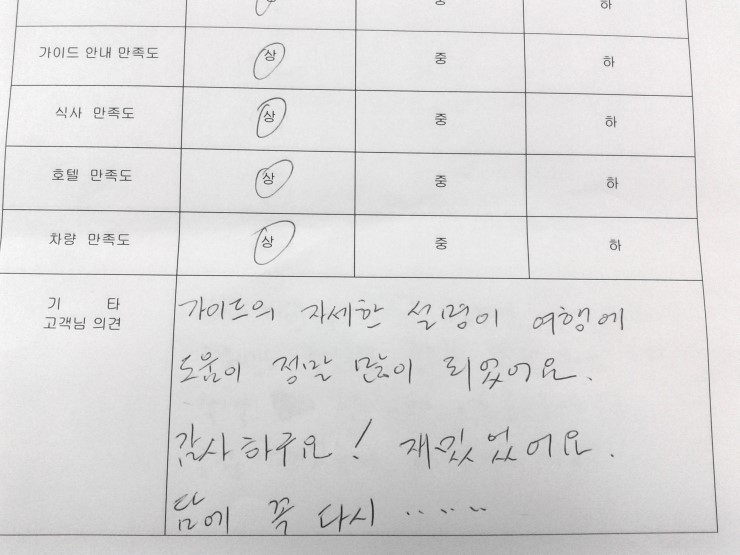 하
가이드 안내 만족도 상 중 하
식사 만족도 상 중 하
호텔 만족도 상 중 하
차량 만족도 상 중 하
기 타
고객님 의견
가이드의 자세한 설명이 여행에
도움이 정말 많이 되었어요.
감사하구요! 재밌었어요.
담에 꼭 다시 ......